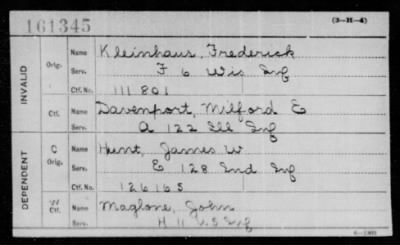 161345
(3-H-4)
INVALID
Orig. Name Kleinhaus, Frederick
Serv. F 6 Wis Inf
Ctf. No. 111801
Ctf. Name Davenport, Milford E
Serv. A 122 Ill Inf
DEPENDENT
C Orig. Name Hunt, James W
Serv. E 128 Ind Inf
Ctf. No. 126165
W Ctf. Name Maglone, John
Serv. H 11 U.S Inf